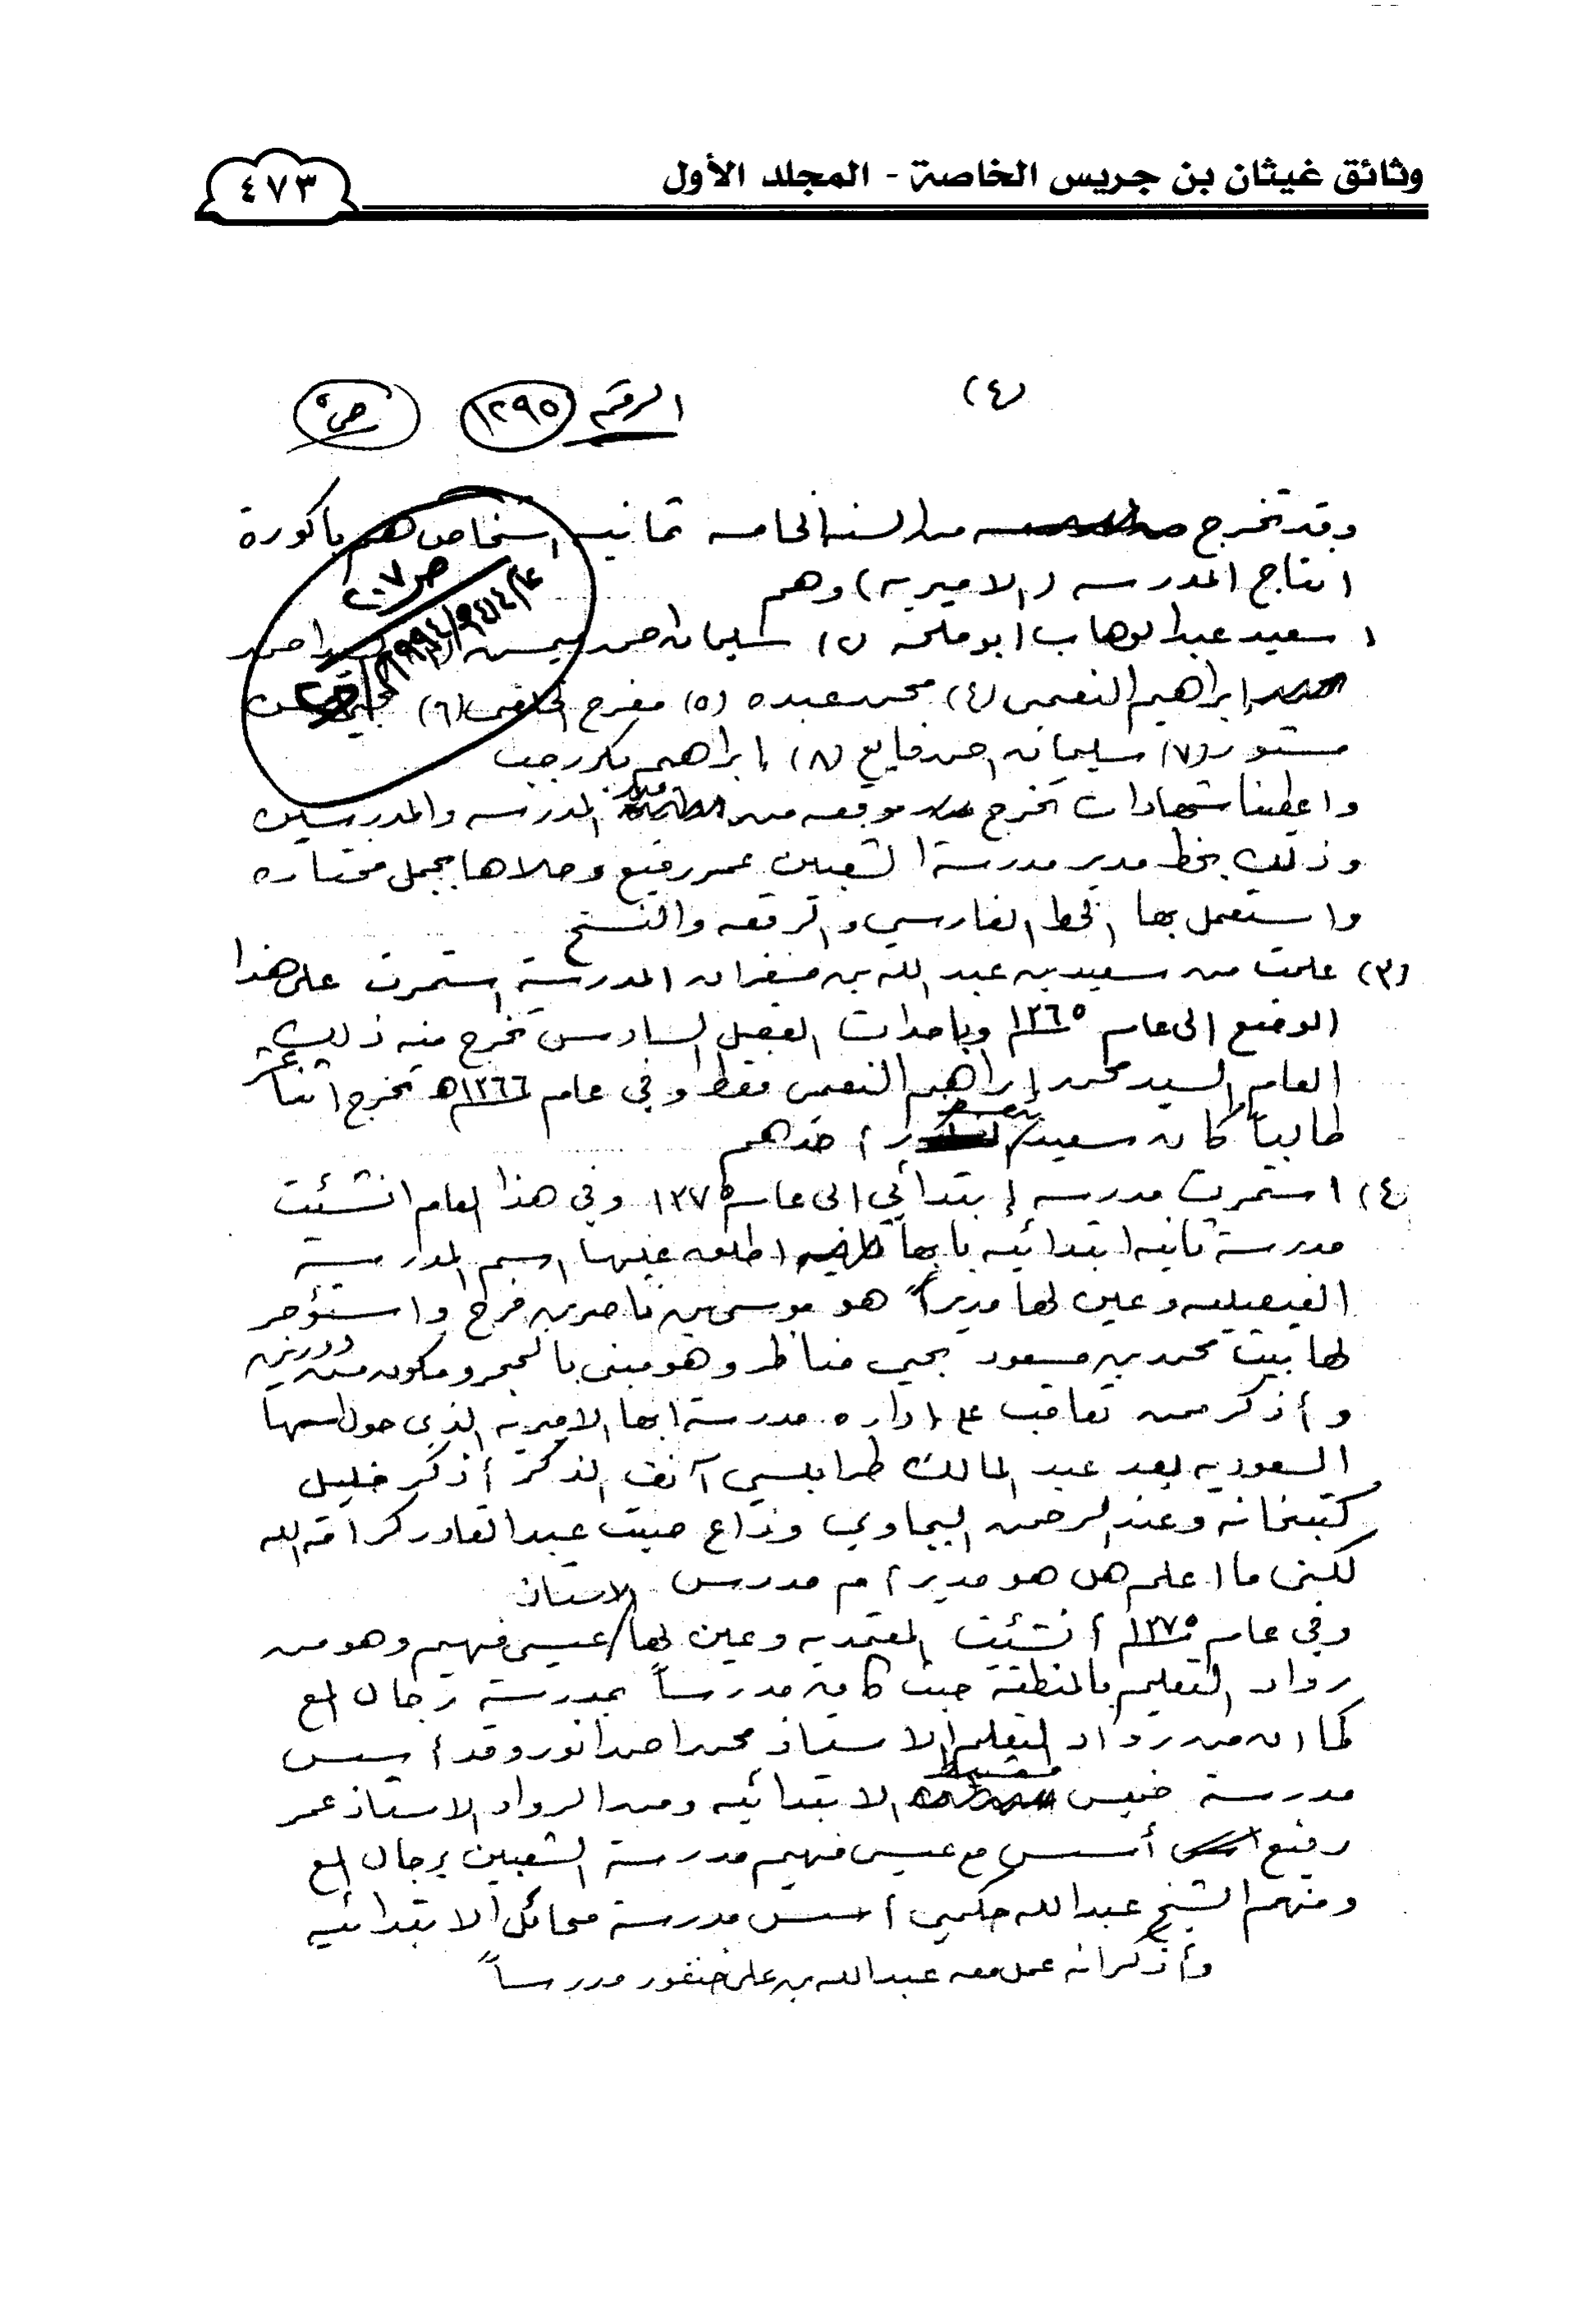 وثائق غيثان بن جريس الخاصة - المجلد الأول
٤٧٣
(٤)
الرقم ١٢٩٥ ص٥
وقد تخرج من السنه الخامسه ثمانيه اشخاص هم باكورة
انتاج المدرسه (الاميريه) وهم
١ سعيد عبدالوهاب ابو ملحه (٢) سليمان احمد السيد احمد
ابراهيم النعمي (٤) محمد عبده (٥) مفرح (٦)
مستور (٧) سليمان احمد فايع (٨) ابراهيم بكر رجب
واعطينا شهادات تخرج موقعه من مدير المدرسه والمدرسين
وذلك بخط مدير مدرسة الشعبين عمر رفيع وحلاها بجمل مختاره
واستعمل بها الخط الفارسي والرقعه والنسخ
(٣) علمت من سعيد بن عبد الله بن مسفر ان المدرسة استمرت على هذا
الوضع الى عام ١٣٦٥ وباحداث الفصل السادس تخرج منه ذلك
العام السيد محمد ابراهيم النعمي فقط وفي عام ١٣٦٦ه تخرج اثنا عشر
طالباً كان سعيد بن مسفر أحدهم
(٤) استمرت مدرسه إبتدائي الى عام ١٣٧٥ وفي هذا العام انشئت
مدرسة ثانيه ابتدائيه بابها اطلق عليها اسم المدرسة
الفيصليه وعين لها مديراً هو موسى بن ناصر بن فرج واستؤجر
لها بيت محمد بن مسعود يحيى مناظر وهو مبنى بالحجر ومكون من دورين
وأذكر ممن تعاقب على اداره مدرسة ابها الاميريه الذي حول اسمها
السعوديه بعد عبد المالك طرابلسي آنف الذكر أذكر خليل
كتبخانه وعبد الرحمن البيجاوي وذاع صيت عبدالقادر كرامة الله
لكنى ما اعلم هل هو مدير أم مدرس
وفي عام ١٣٧٥ أنشئت المعتمديه وعين لها الاستاذ عيسى فهيم وهو من
رواد التعليم بالمنطقة حيث كان مدرساً بمدرسة رجال المع
كما ان من رواد التعليم الاستاذ محمد احمد انور وقد أسس
مدرسة خميس مشيط الابتدائيه ومن الرواد الاستاذ عمر
رفيع أسس مع عيسى فهيم مدرسة الشعبين برجال المع
ومنهم الشيخ عبدالله حكمي أسس مدرسة محائل الابتدائيه
وأذكر انه عمل معه عبدالله بن على خنفور مدرساً